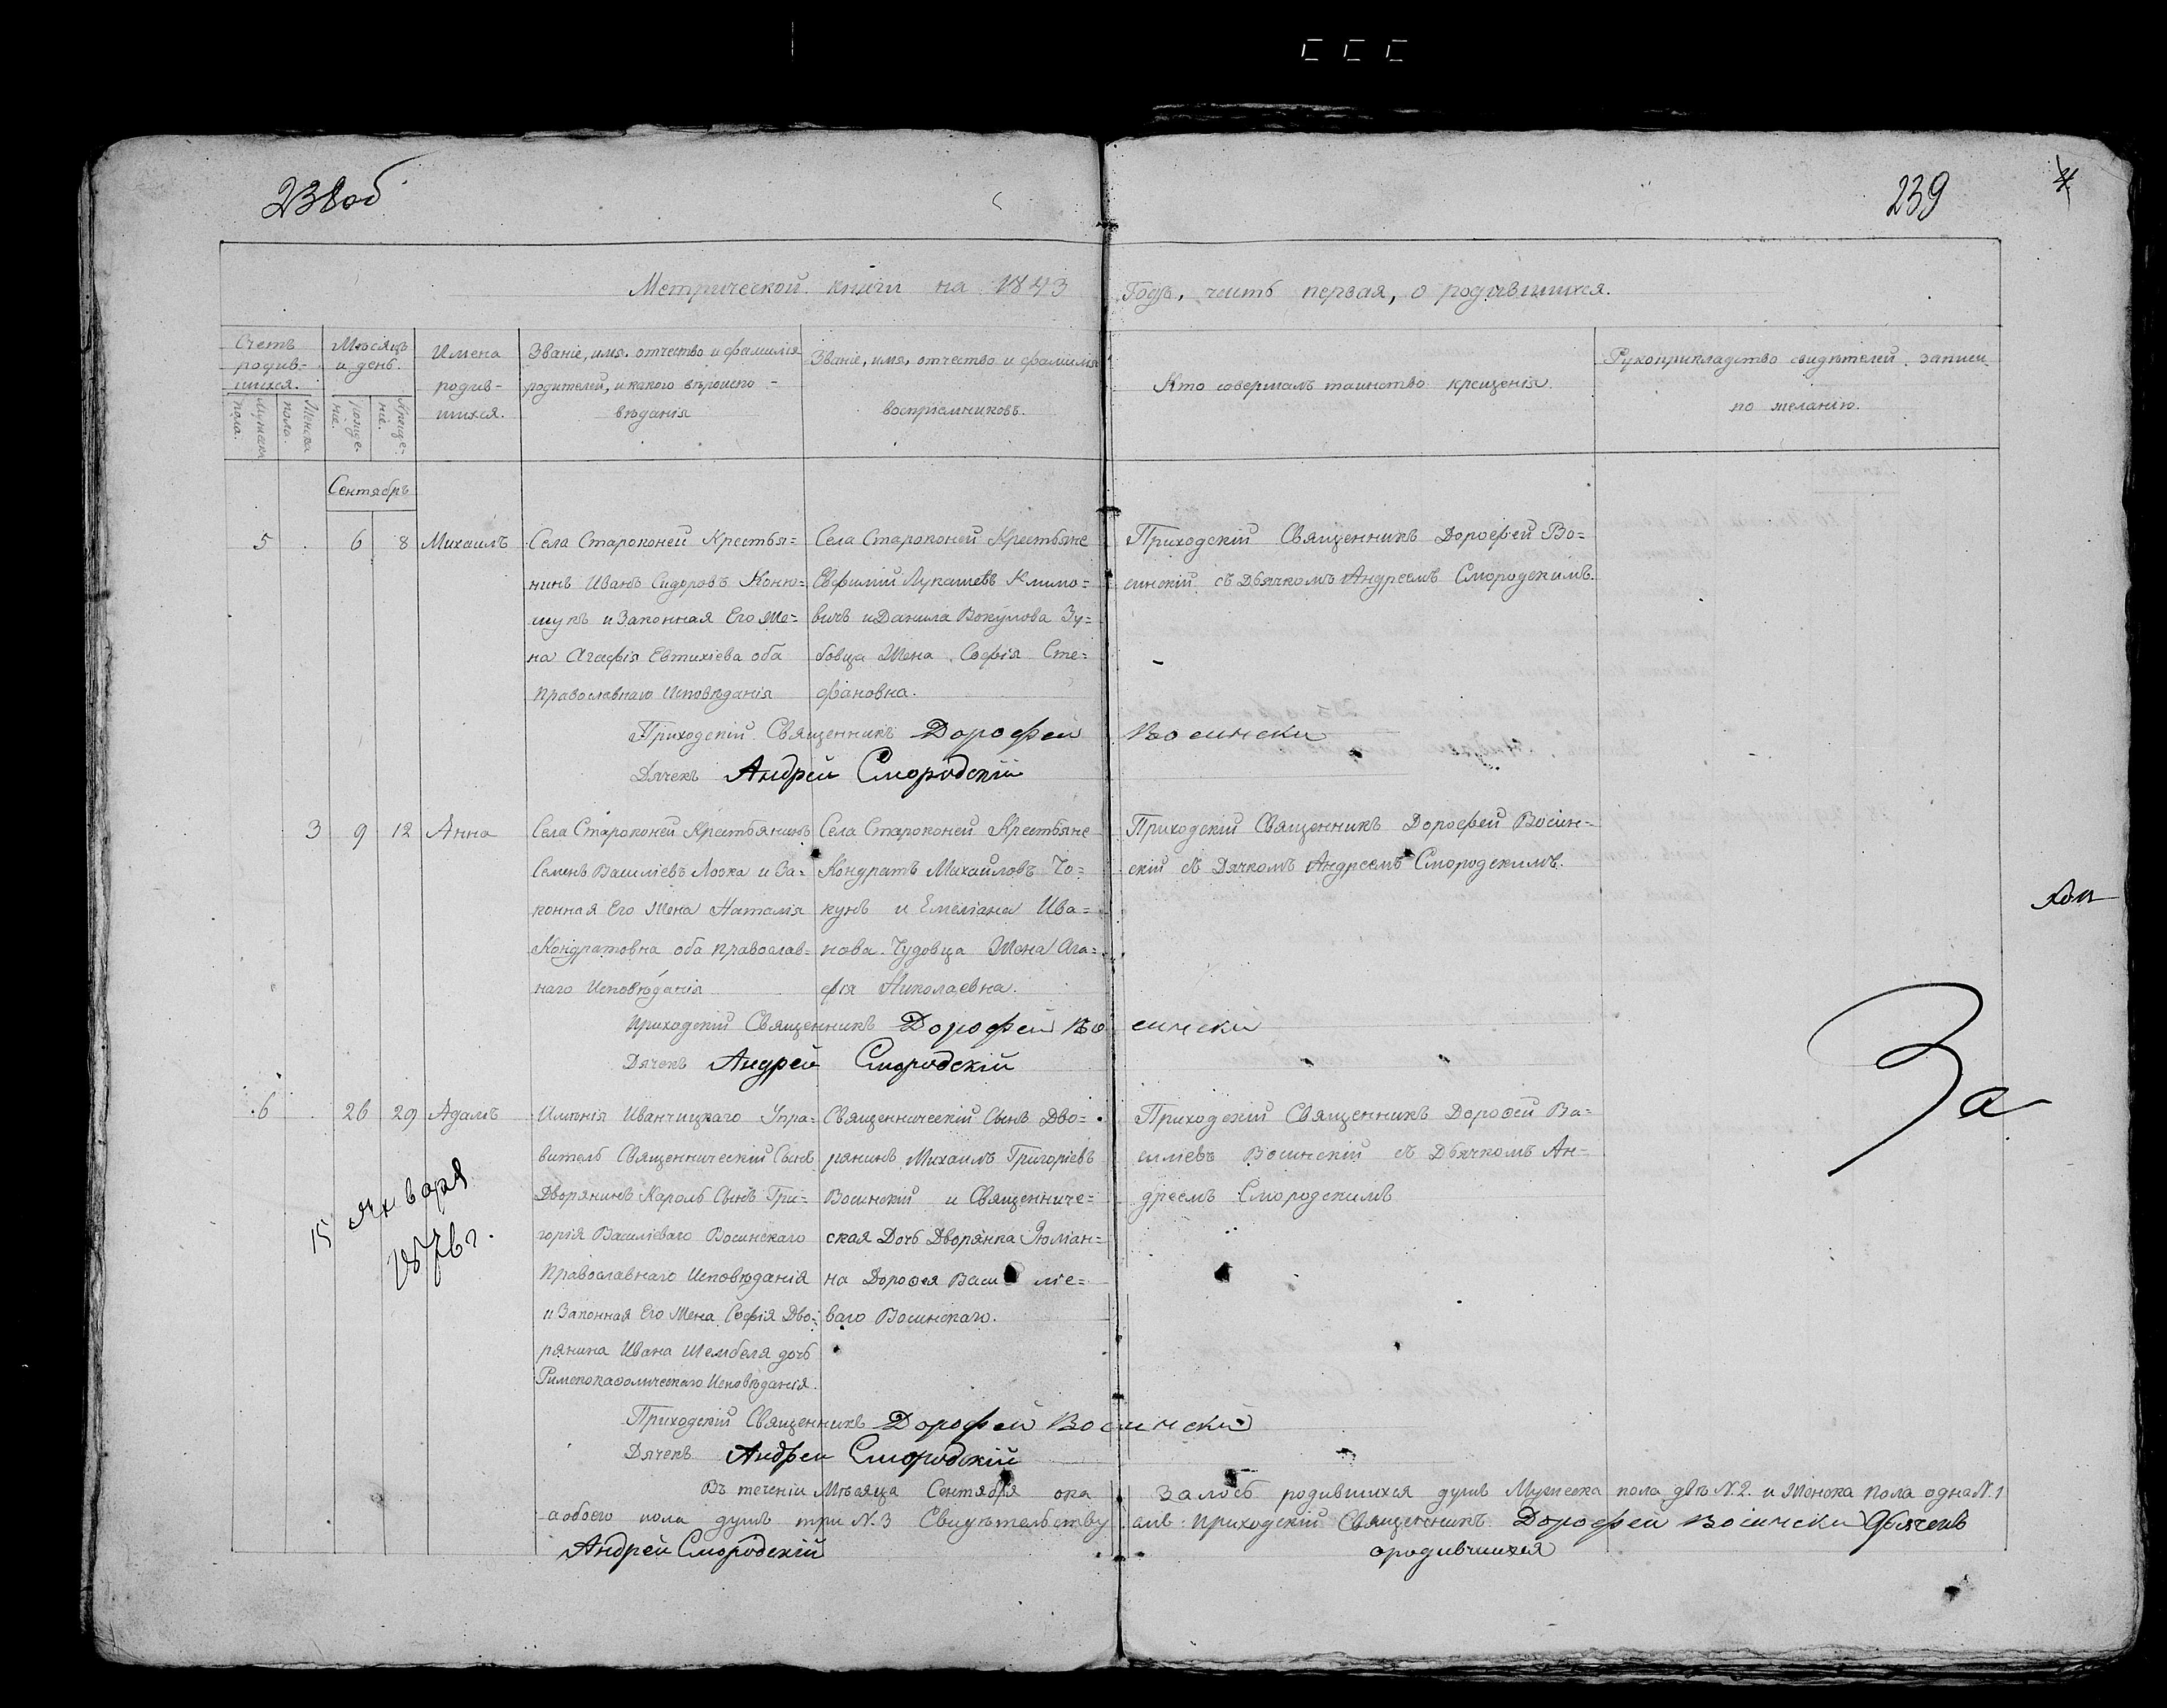 238об
239
4
Метрической книги на 1843
Годъ, часть первая, о родившихся.
Счетъ родив-шихся.
Мужеска пола.
Женска пола.
Мѣсяцъ и день.
рожде-ніе.
Креще-ніе.
Имена родив-шихся.
Званіе, имя, отчество и фамилія
родителей, и какого вѣроиспо-
вѣданія
Званіе, имя, отчество и фамилія
воспріемниковъ.
Кто совершалъ таинство крещенія.
Рукоприкладство свидѣтелей записи
по желанію.
Сентябрь
5
6
8
Михаилъ
Села Староконей Крестья=
нинъ Иванъ Сидоровъ Коню=
шукъ и Законная Его Же=
на Агафія Евтихіева оба
Православнаго Исповѣданія
Села Староконей Крестьяне
Евфимій Лукашевъ Климо=
вичъ и Данила Вокулова Зу=
бовца Жена Софія Сте=
фановна.
Приходскій Священникъ Дорофей Во=
синскій съ Дьячкомъ Андреемъ Смородскимъ.
Приходскій Священникъ Дорофей Восински
Дячекъ Андрей Смородскій
3
9
12
Анна
Села Староконей Крестьянинъ
Семенъ Василіевъ Лоока и За=
конная Его Жена Наталія
Кондратовна оба православ=
наго Исповѣданія
Села Староконей Крестьяне
Кондратъ Михайловъ Чо=
кунъ и Емеліана Ива=
нова Чудовца Жена Ага=
фія Николаевна.
Приходскій Священникъ Дорофей Восин=
скій съ Дячкомъ Андреемъ Смородскимъ.
Приходскій Священникъ Дорофей Восински
Дячекъ Андрей Смородскій
6
26
29
Адамъ
15 января
1876 г.
Имѣнія Иванчицкаго Упра=
витель Священническій Сынъ
Дворянинъ Кароль Сынъ Гри=
горія Василіеваго Восинскаго
Православнаго Исповѣданія
и Законная Его Жена Софія Дво=
рянина Ивана Шембеля дочь
Римскокаѳолическаго Исповѣданія.
Священническій Сынъ Дво=
рянинъ Михаилъ Григоріевъ
Восинскій и Священниче=
ская Дочь Дворянка Юліан=
на Дороѳея Васи ліе=
ваго Восинскаго.
Приходскій Священникъ Дороѳей Ва=
силіевъ Восинскій съ Дьячкомъ Ан=
дреемъ Смородскимъ
За
Приходскій Священникъ Дорофей Восинскій
Дячекъ Андрей Смородскій
Въ теченіи Мѣсяца Сентября ока залось родившихся душъ Мужеска пола двѣ N.2. и Женска пола одна N.1
а обоего пола душъ три N.3 Свидѣтельству емъ: приходскій Священникъ Дорофей Восински Дьячекъ
Андрей Смородскій
ородившихся